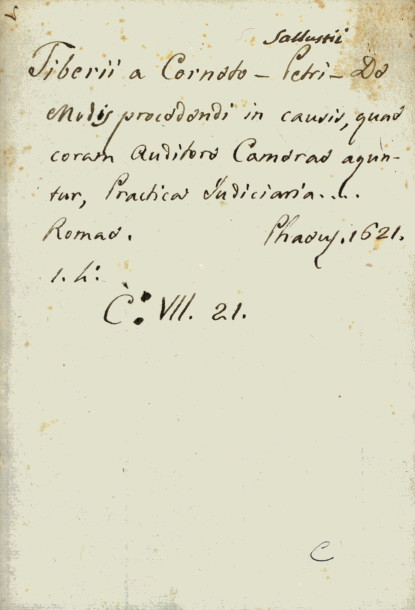 Sallustii
Tiberii a Corneto - Petri - De
Modis procedendi in causis, quae
coram Auditore Camerae agun-
tur, Practica Judiciaria....
Romae. Phaeus. 1621.
1. h:
C: VII. 21.
C